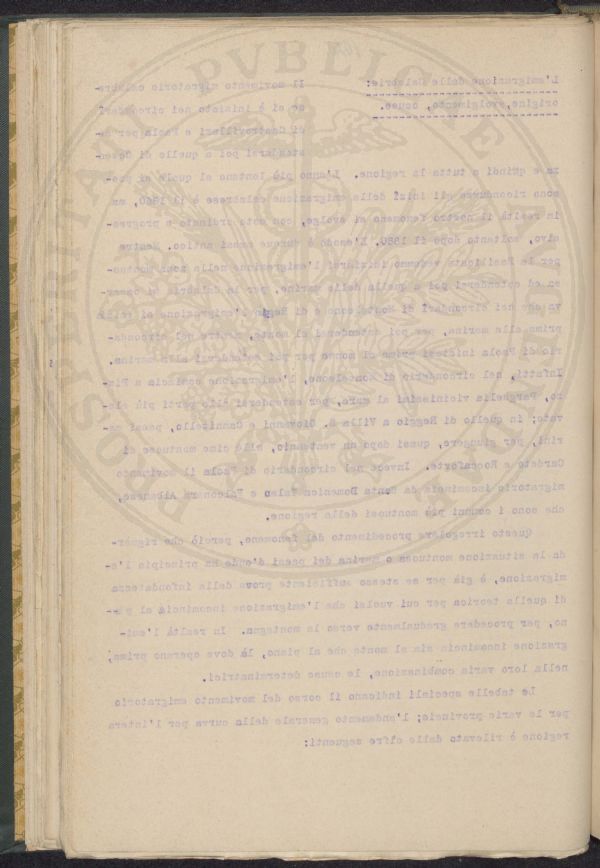 PVBLICAE
PROSPERITATI
L'emigrazione delle Calabrie:
origine, svolgimento, cause.
Il movimento migratorio calabre-
se si è iniziato nei circondari
di Castrovillari e Paola per e-
stendersi poi a quello di Cosen-
za e quindi a tutta la regione. L'anno più lontano al quale si pos-
sono ricondurre gli inizi della emigrazione calabrese è il 1860, ma
in realtà il nostro fenomeno si svolge, con moto ordinato e progres-
sivo, soltanto dopo il 1880. L'esodo è dunque assai antico. Mentre
per la Basilicata vedemmo iniziarsi l'emigrazione nella zona montuo-
sa ed estendersi poi a quella delle marine, per la Calabria si osser-
va che nei circondari di Monteleone e di Reggio l'emigrazione si inizia
prima alla marina, per poi estendersi al monte, mentre nel circonda-
rio di Paola iniziasi prima al monte per poi estendersi alla marina.
Infatti, nel circondario di Monteleone, l'emigrazione comincia a Piz-
zo, Parghelia vicinissimi al mare, per estendersi alle parti più ele-
vate; in quello di Reggio a Villa S. Giovanni e Cannitello, paesi ma-
rini, per giungere, quasi dopo un ventennio, alle cime montuose di
Cardeto e Roccaforte. Invece nel circondario di Paola il movimento
migratorio incomincia da Santa Domenica Talao e Falconara Albanese,
che sono i comuni più montuosi della regione.
Questo irregolare procedimento del fenomeno, perciò che riguar-
da la situazione montuosa o marina dei paesi d'onde ha principio l'e-
migrazione, è già per se stesso sufficiente prova della infondatezza
di quella teorica per cui vuolsi che l'emigrazione incominci al pia-
no, per procedere gradualmente verso la montagna. In realtà l'emi-
grazione incomincia sia al monte che al piano, là dove operano prima,
nella loro varia combinazione, le cause determinatrici.
Le tabelle speciali indicano il corso del movimento emigratorio
per le varie provincie; l'andamento generale della curva per l'intera
regione è rilevato dalle cifre seguenti: